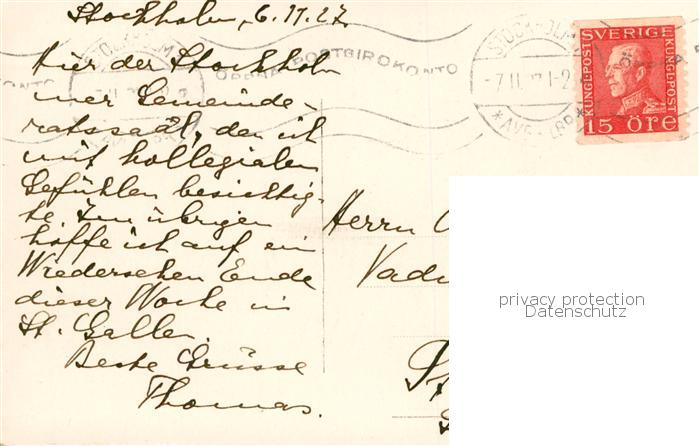 Stockholm, 6.11.27.
Hier der Stockhol-
mer Gemeinde-
ratssaal, den ich
mit kollegialen
Gefühlen besichtig-
te. Im übrigen
hoffe ich auf ein
Wiedersehen Ende
dieser Woche in
St. Gallen.
Beste Grüsse
Thomas.
ÖPPNA POSTGIROKONTO
STOCKHOLM
-7.11.
1-2
*AVG
SVERIGE
KUNGL·POST
KUNGL·POST
15 ÖRE
Herrn
Vadu
St
privacy protection
Datenschutz